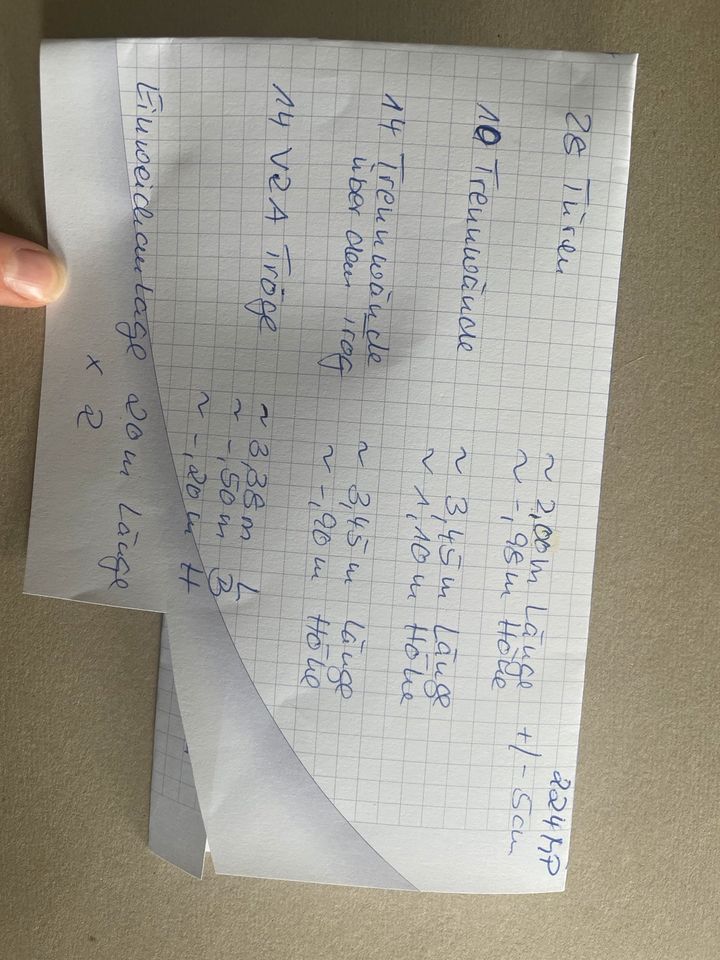 224 MP
28 Türen ~ 2,00 m Länge
~ -,98 m Höhe +/- 5cm
10 Trennwände ~ 3,45 m Länge
~ 1,10 m Höhe
14 Trennwände ~ 3,45 m Länge
über dem Trog ~ -,90 m Höhe
14 V2A Tröge ~ 3,38 m L
~ -,50 m B
~ -,20 m H
Einweichanlage 20 m Länge
x 2